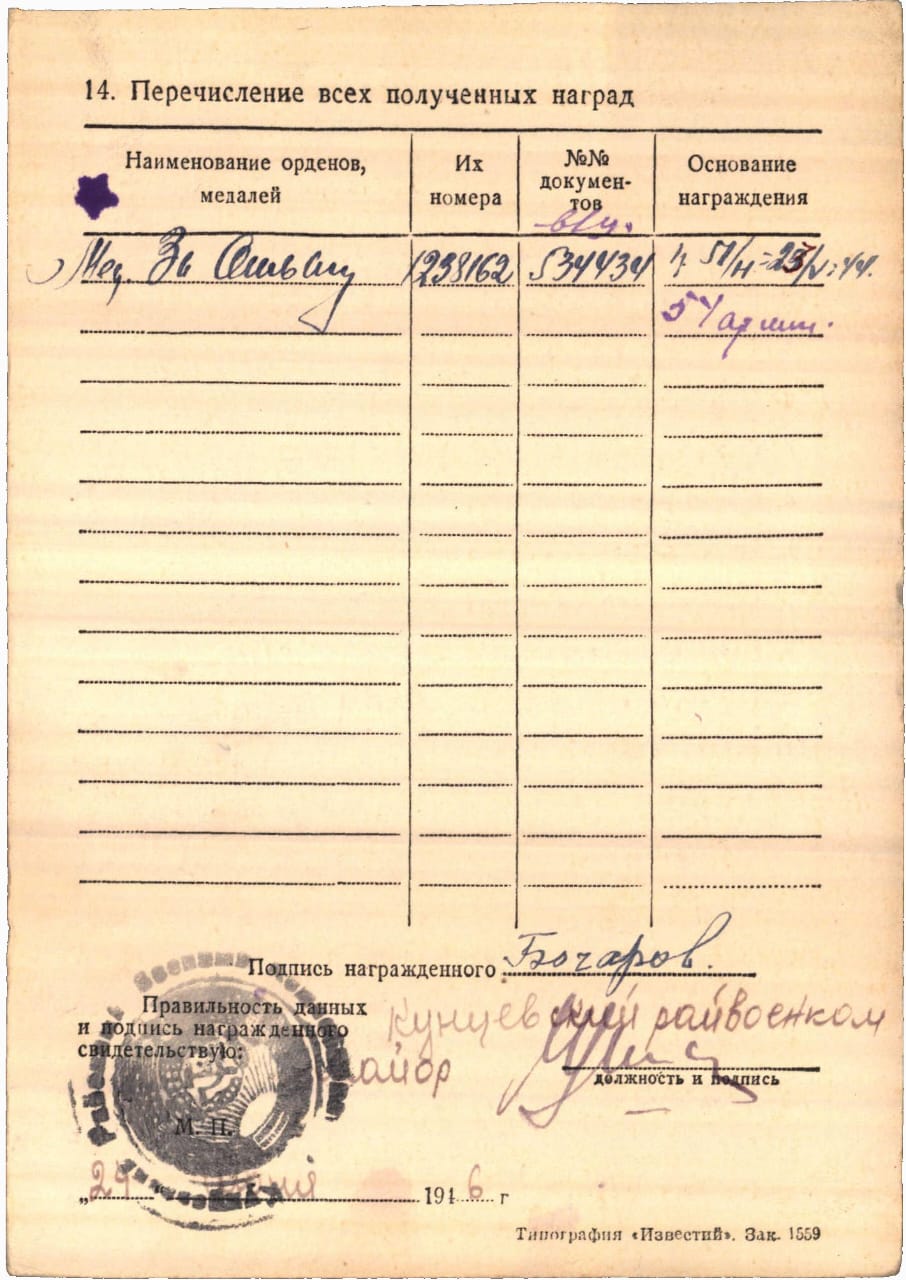 14. Перечисление всех полученных наград
Наименование орденов, медалей
Их номера
№№ докумен-тов
Основание награждения
Мед. За Отвагу 1238162 534434 51/н=23/V=44.
54 армии.
Подпись награжденного Бочаров.
Правильность данных
и подпись награжденного
свидетельствую:
Кунцевский райвоенком
майор
должность и подпись
М. П.
„24“ 1946 г
Типография «Известий». Зак. 1559